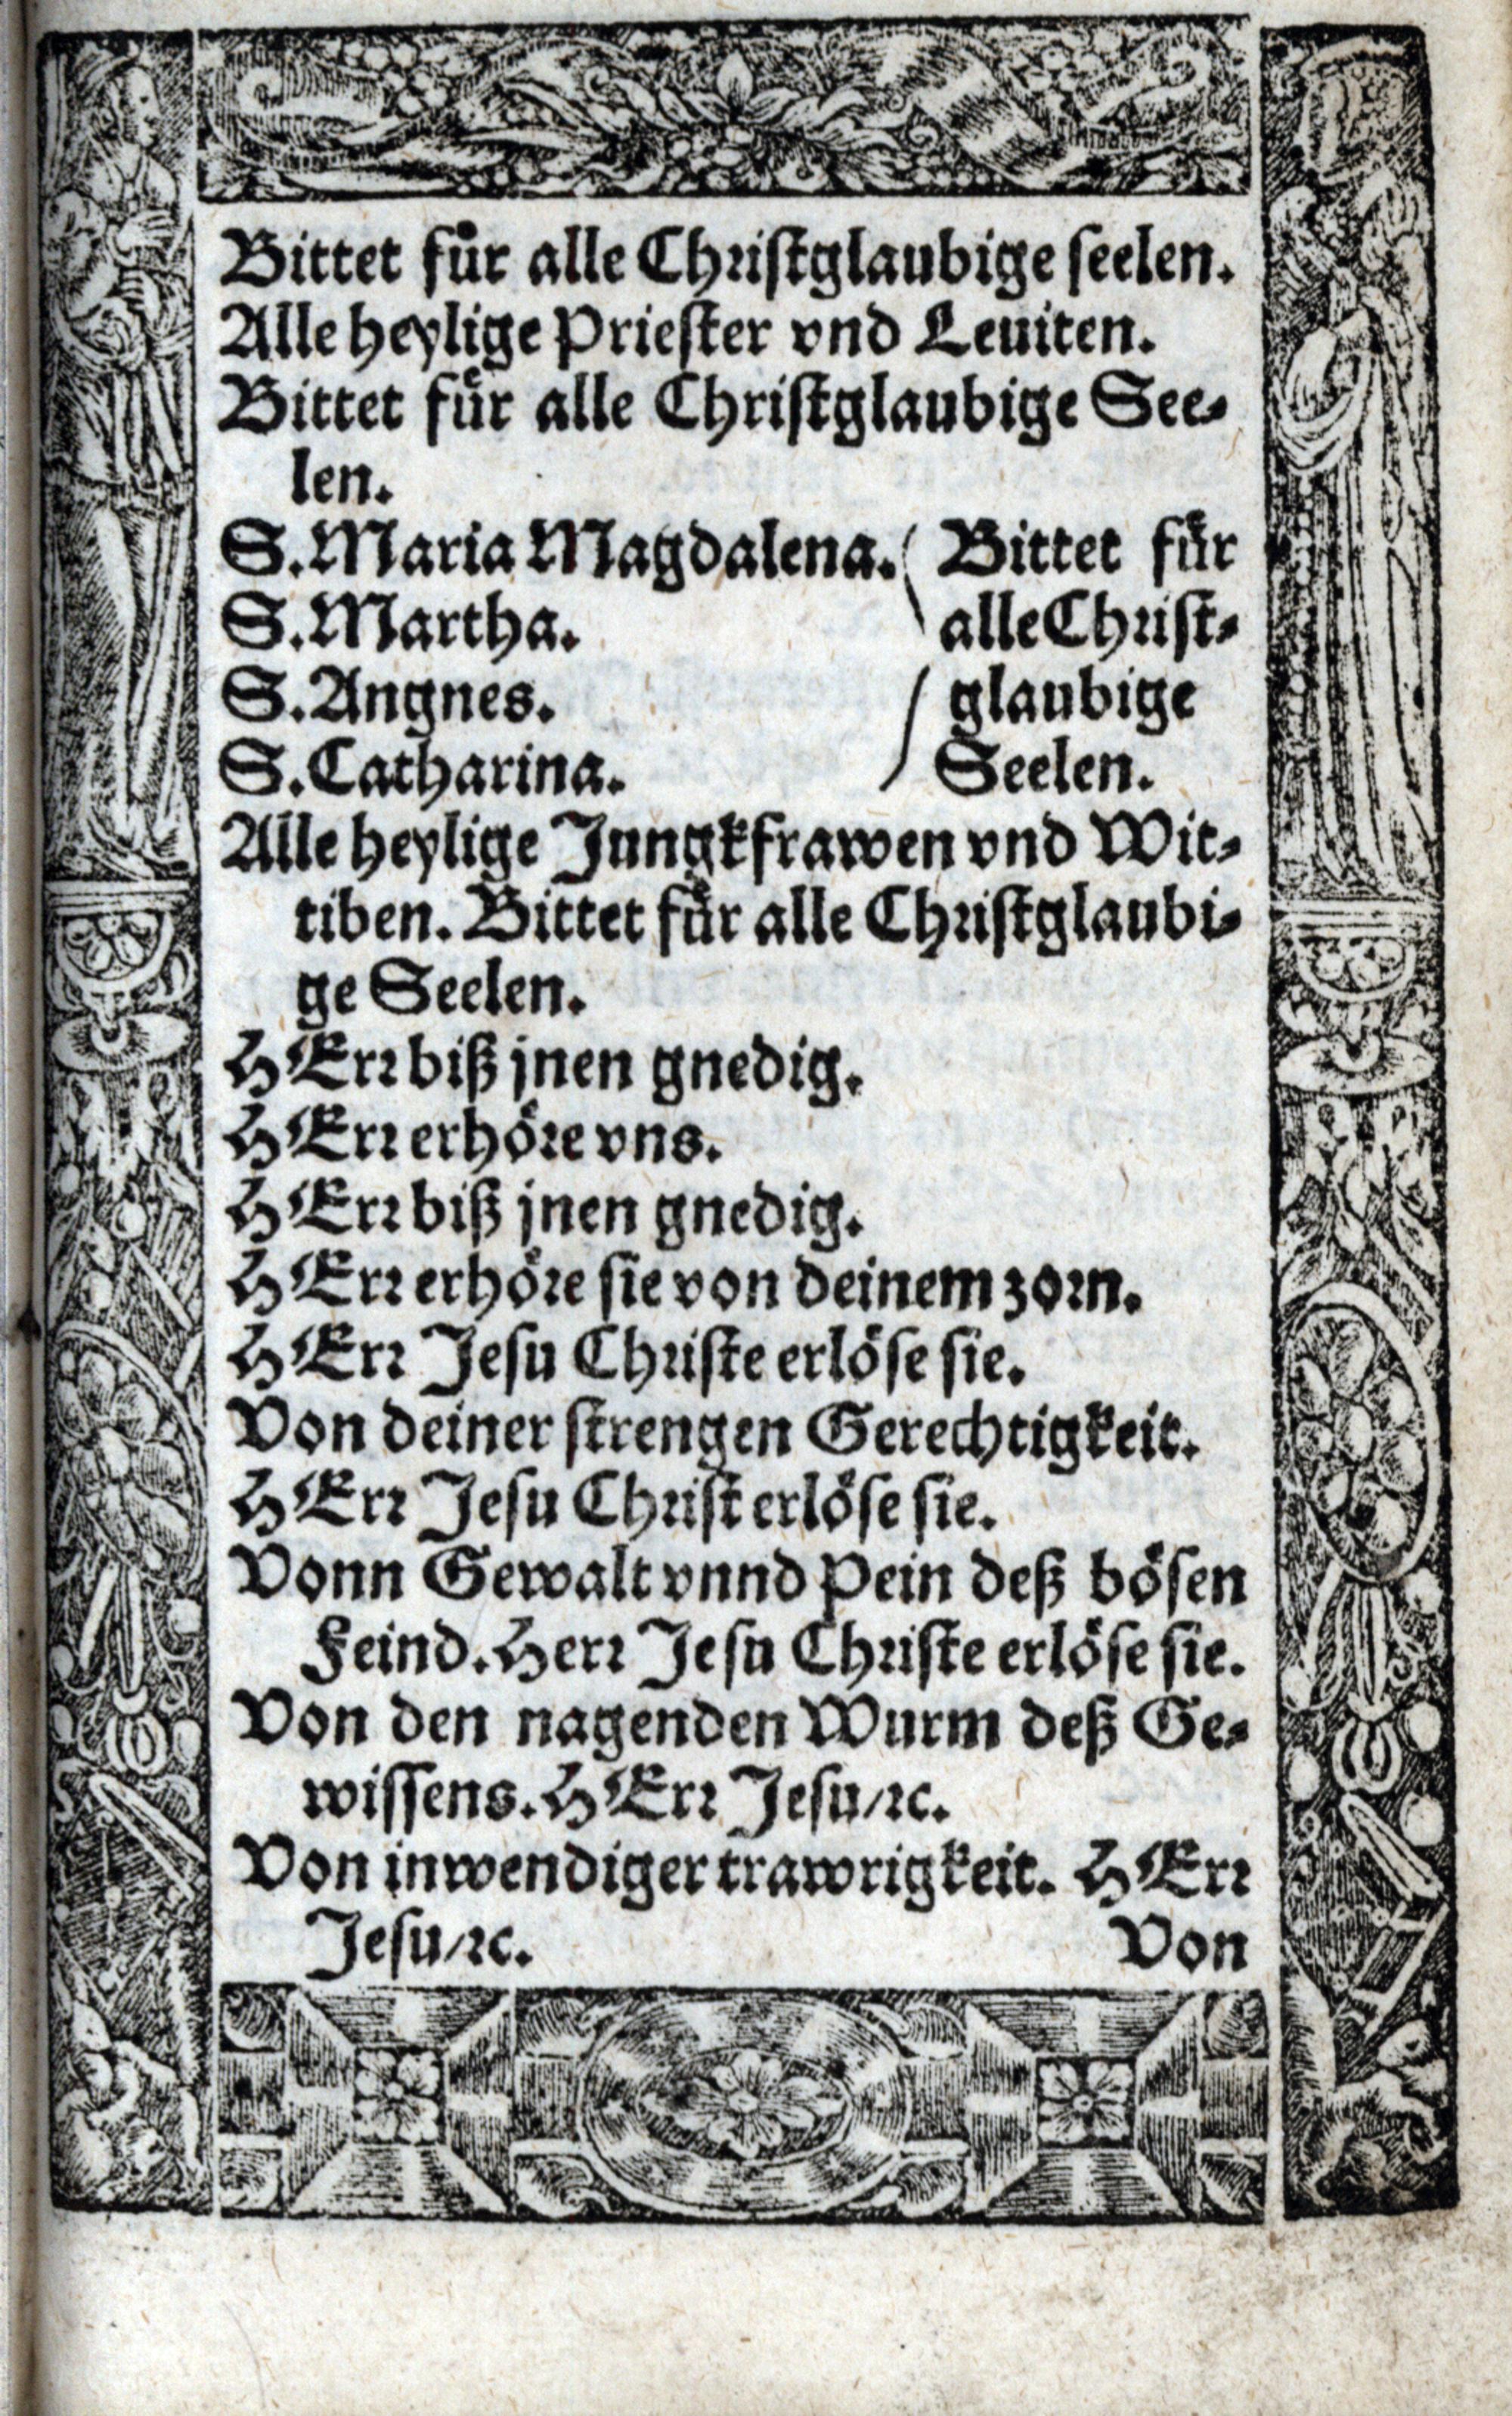 Bittet für alle Christglaubige seelen.
Alle heylige Priester vnd Leuiten.
Bittet für alle Christglaubige See-
len.
S. Maria Magdalena. Bittet für
S. Martha. alle Christ-
S. Angnes. glaubige
S. Catharina. Seelen.
Alle heylige Jungkfrawen vnd Wit-
tiben. Bittet für alle Christglaubi-
ge Seelen.
HErr biß jnen gnedig.
HErr erhöre vns.
HErr biß jnen gnedig.
HErr erhöre sie von deinem zorn.
HErr Jesu Christe erlöse sie.
Von deiner strengen Gerechtigkeit.
HErr Jesu Christ erlöse sie.
Vonn Gewalt vnnd Pein deß bösen
Feind. Herr Jesu Christe erlöse sie.
Von den nagenden Wurm deß Ge-
wissens. HErr Jesu/ꝛc.
Von inwendiger trawrigkeit. HErr
Jesu/ꝛc. Von